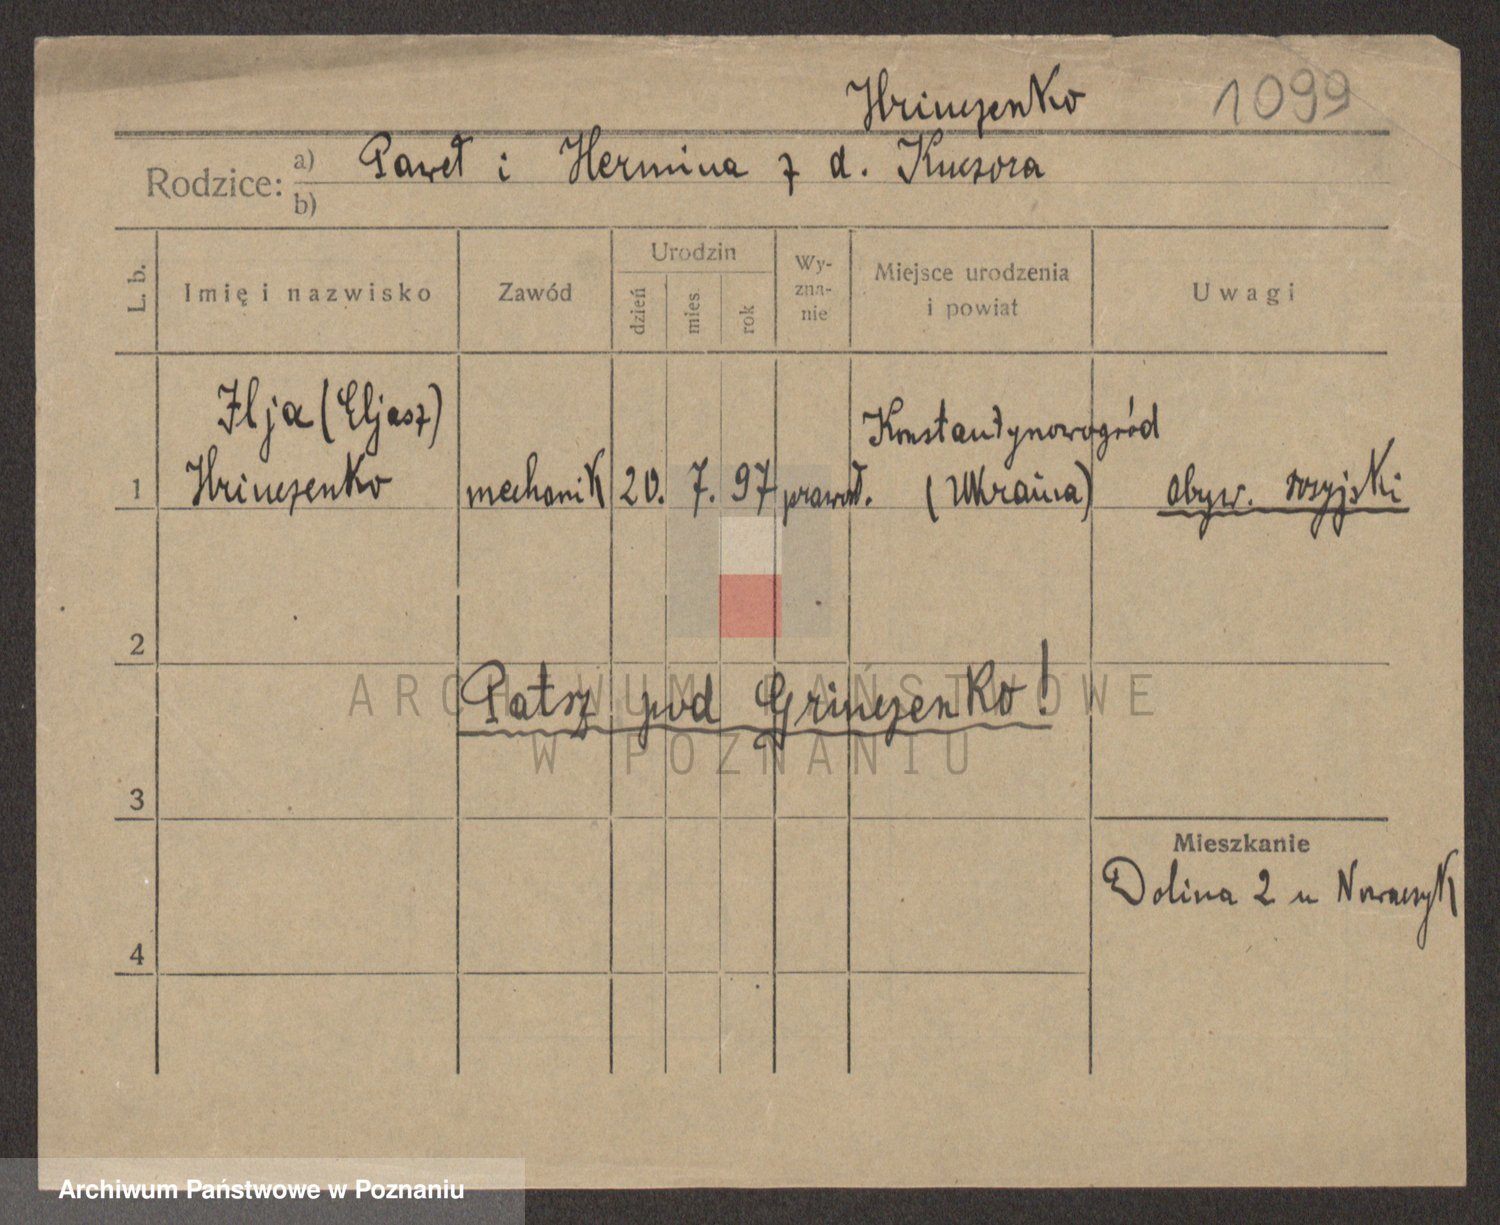 Hrinczenko 1099
Rodzice: a) Paweł i Hermina z d. Kuczora
b)
L. b. Imię i nazwisko Zawód Urodzin dzień mies. rok Wy-zna-nie Miejsce urodzenia i powiat Uwagi
Ilja (Eljasz) Konstantynowogród
1 Hrinczenko mechanik 20. 7. 97 prawosł. (Ukraina) obyw. rosyjski
2
Patrz pod Grinczenko!
ARCHIWUM PAŃSTWOWE
W POZNANIU
3
Mieszkanie
Dolina 2 u Nowaczyk
4
Archiwum Państwowe w Poznaniu